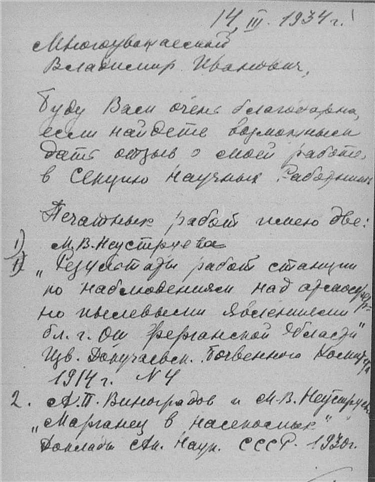 14 III. 1934 г.
Многоуважаемый
Владимир Иванович,
Буду Вам очень благодарна,
если найдете возможным
дать отзыв о моей работе
в Секцию Научных Работников
Печатных работ имею две:
1) М.В. Неуструева
„Результаты работ станции
по наблюдениям над атмосфер-
но пылевыми явлениями
бл. г. Ош Ферганской Области"
Изв. Докучаевск. Почвенного Комитета
1914 г. N 4
2. А.П. Виноградов и М.В. Неуструева
„Марганец в насекомых"
Доклады Ак. Наук. СССР. 1930 г.